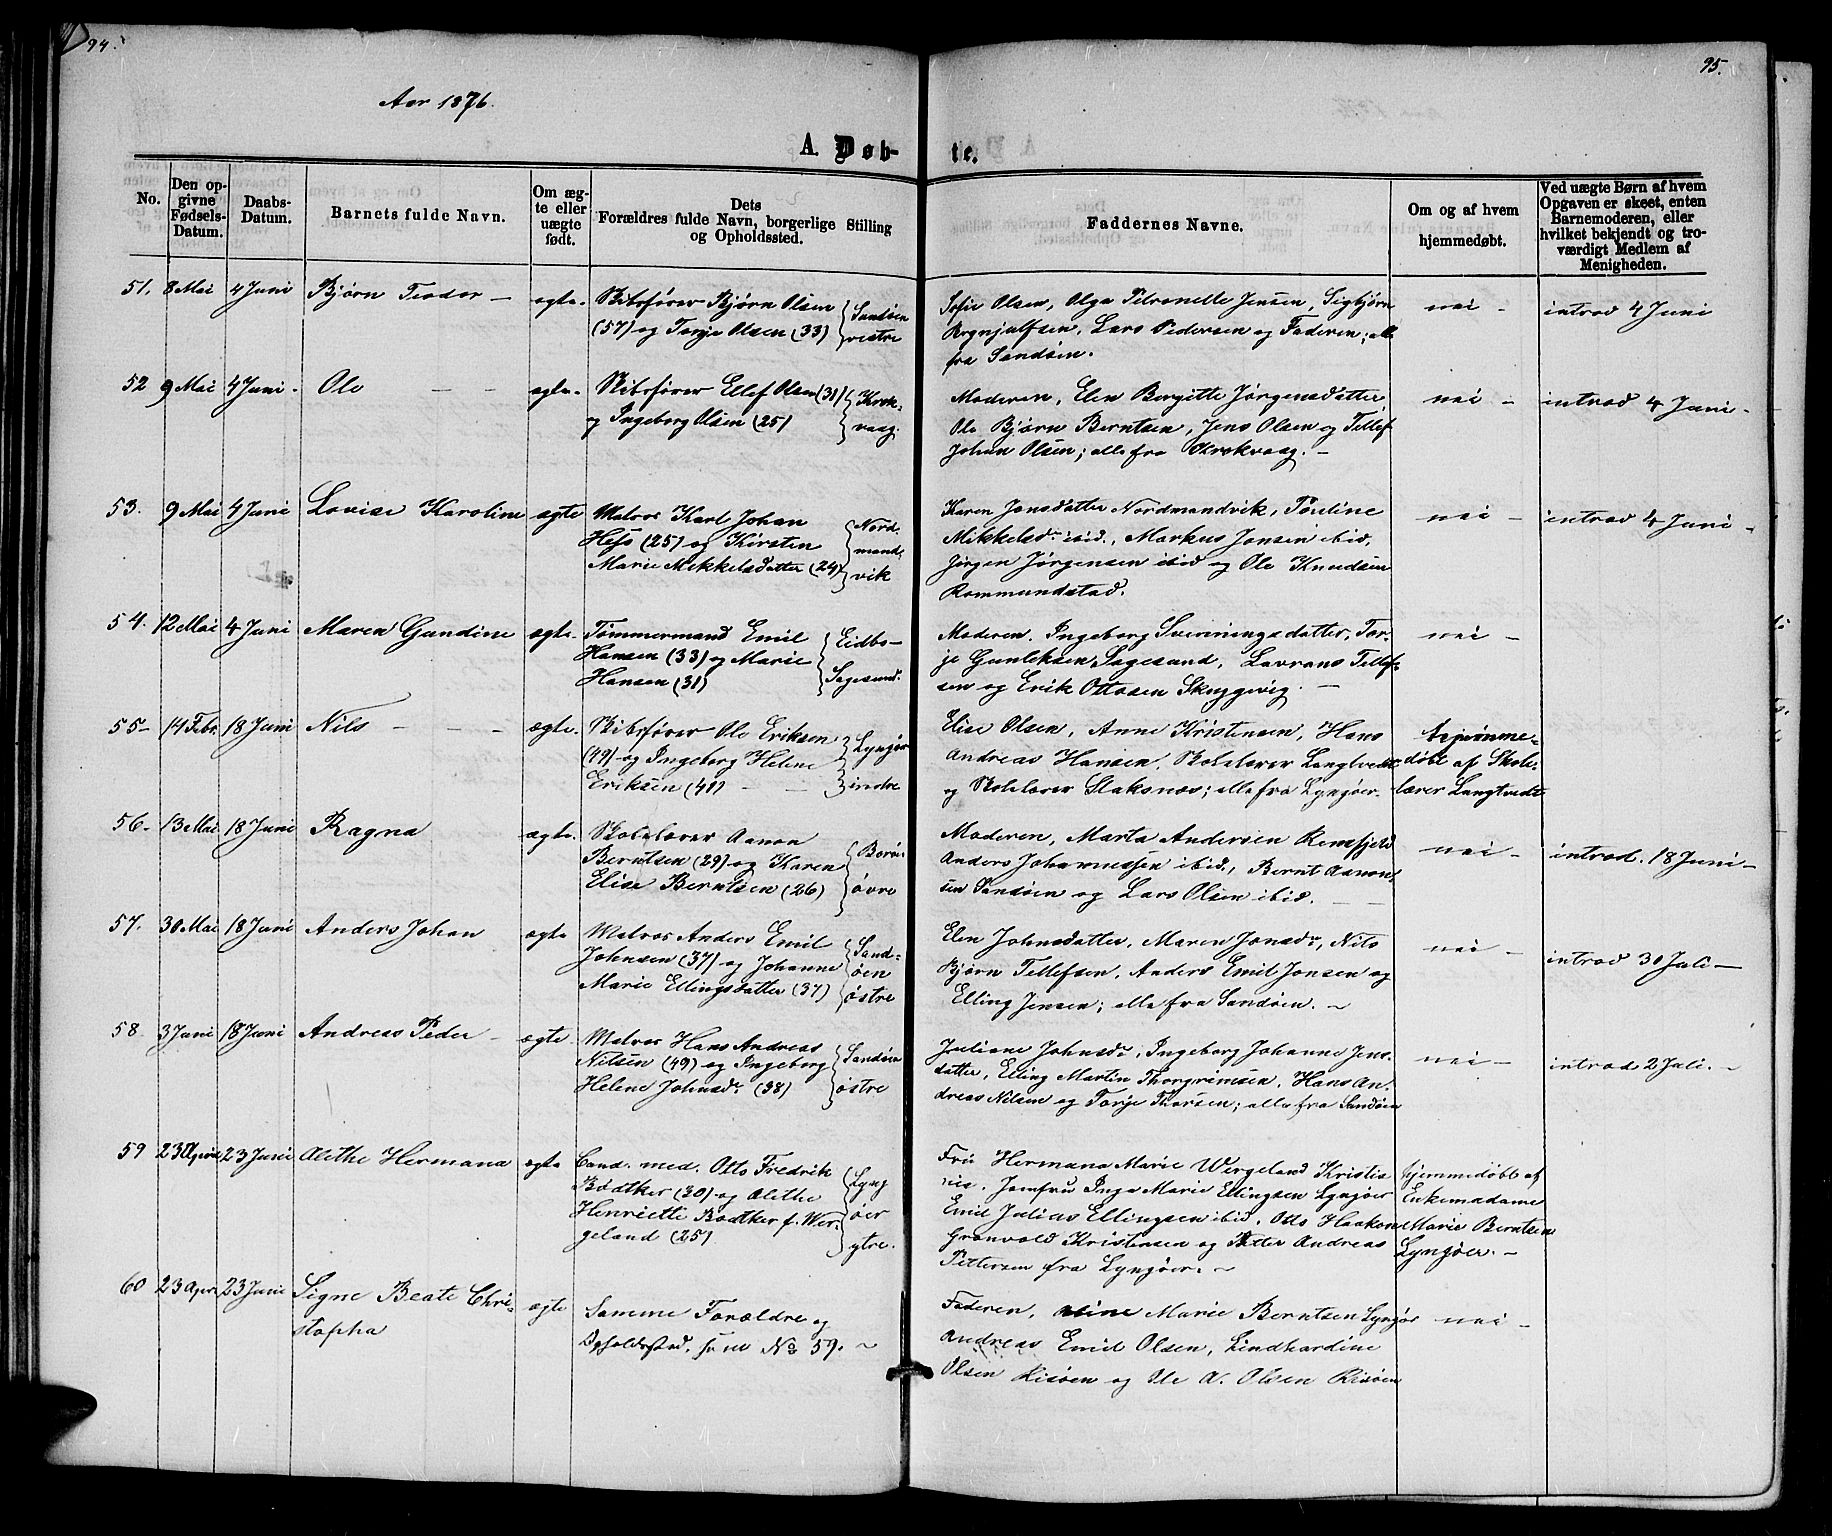 94.
95.
Aar 1876.
A. Døb-
te.
No.
Den op-
givne
Fødsels-
Datum.
Daabs-
Datum.
Barnets fulde Navn.
Om æg-
te eller
uægte
født.
Dets
Forældres fulde Navn, borgerlige Stilling
og Opholdssted.
Faddernes Navne.
Om og af hvem
hjemmedøbt.
Ved uægte Børn af hvem
Opgaven er skeet, enten
Barnemoderen, eller
hvilket bekjendt og tro-
værdigt Medlem af
Menigheden.
51. 8 Mai 4 Juni Bjørn Teodor — ægte. Skibsfører Bjørn Olsen
(57) og Torje Olsen (33)
Sandøen
vestre
Sofie Olsen, Olga Petronelle Jensen, Sigbjørn
Brynjulfsen, Lars Pedersen og Faderen; alle
fra Sandøen.
nei - introd 4 Juni
52 9 Mai 4 Juni. Ole — — ægte. Skibsfører Ellef Olsen (31)
og Ingeborg Olsen (25)
Krok-
vaag.
Moderen, Elen Bergitte Jørgensdatter
Ole Bjørn Berntsen, Jens Olsen og Tellef
Johan Olsen; alle fra Krokvaag. —
nei - introd 4 Juni -
53. 9 Mai 4 Juni Lovise Karoline ægte Matros Karl Johan
Hess (25) og Kirsten
Marie Mikkelsdatter (24)
Nord-
mand-
vik
Karen Jonsdatter Nordmandvik, Pauline
Mikkelsdr ibid., Markus Jonsen ibid,
Jørgen Jørgensen ibid og Ole Knudsen
Rommundstad.
nei - introd 4 Juni -
54. 12 Mai 4 Juni Maren Gundine ægte. Tømmermand Emil
Hansen (33) og Marie
Hansen (31)
Eidbo-
Sagesund.
Moderen. Ingeborg Sveinungsdatter, Tor-
je Gunleksen Sagesund, Lavrans Tellef-
sen og Erik Ottosen Skuggevig. —
nei -
55- 14 Febr. 18 Juni Nils — — — ægte. Skibsfører Ole Eriksen
(49) og Ingeborg Helene
Eriksen (41) — —
Lyngør
indre
Elise Olsen, Anne Kristensen, Hans
Andreas Hansen, Skolelærer Langtvedt
og Skolelærer Slaksnes; alle fra Lyngøer.
hjemme-
døbt af Skole-
lærer Langtvedt
56. 13 Mai 18 Juni Ragna ægte. Skolelærer Aanon
Berntsen (29) og Karen
Elise Berntsen (26)
Borøe
øvre
Moderen, Marta Andersen Remsfjeld
Anders Johannessen ibid., Bernt Aanon-
sen Sandøen og Lars Olsen ibid. —
nei - introd. 18 Juni -
57. 30 Mai 18 Juni Anders Johan ægte Matros Anders Emil
Johnsen (37) og Johanne
Marie Ellingsdatter (37)
Sand-
øen
østre
Elen Johnsdatter, Maren Jonsdr, Nils
Bjørn Tellefsen, Anders Emil Jonsen og
Elling Jensen; alle fra Sandøen. ~
nei - introd 30 Juli -
58. 3 Juni 18 Juni Andreas Peder - ægte. Matros Hans Andreas
Nilsen (49) og Ingeborg
Helene Johnsdr. (38)
Sandøen
østre
Juliane Johnsdr, Ingeborg Johanne Jens-
datter, Elling Martin Thorgrimsen, Hans An-
dreas Nilsen og Torje Thorsen; alle fra Sandøen
nei - introd 2 Juli. ~
59 23 April 23 Juni Alethe Hermana ægte Cand. med. Otto Fredrik
Bødtker (30) og Alethe
Henriette Bødtker f. Wer-
geland (25)
Lyng
øer
ytre.
Fru Hermana Marie Wergeland Kristia
nia. Jomfru Inga Marie Ellingsen Lyngøer
Emil Julius Ellingsen ibid. Otto Haakon
Grønvold Kristensen og Petter Andreas
Pettersen fra Lyngøer. ~
hjemmedøbt af
Enkemadame
Marie Berntsen
Lyngøer. ~
60 23 April 23 Juni Signe Beate Chri-
stopha
ægte Samme Forældre og
Opholdssted, som No 59. ~
Faderen, Marie Berntsen Lyngør
Andreas Emil Olsen, Lindhardine
Olsen Risøen og Ole A. Olsen Risøen
nei -